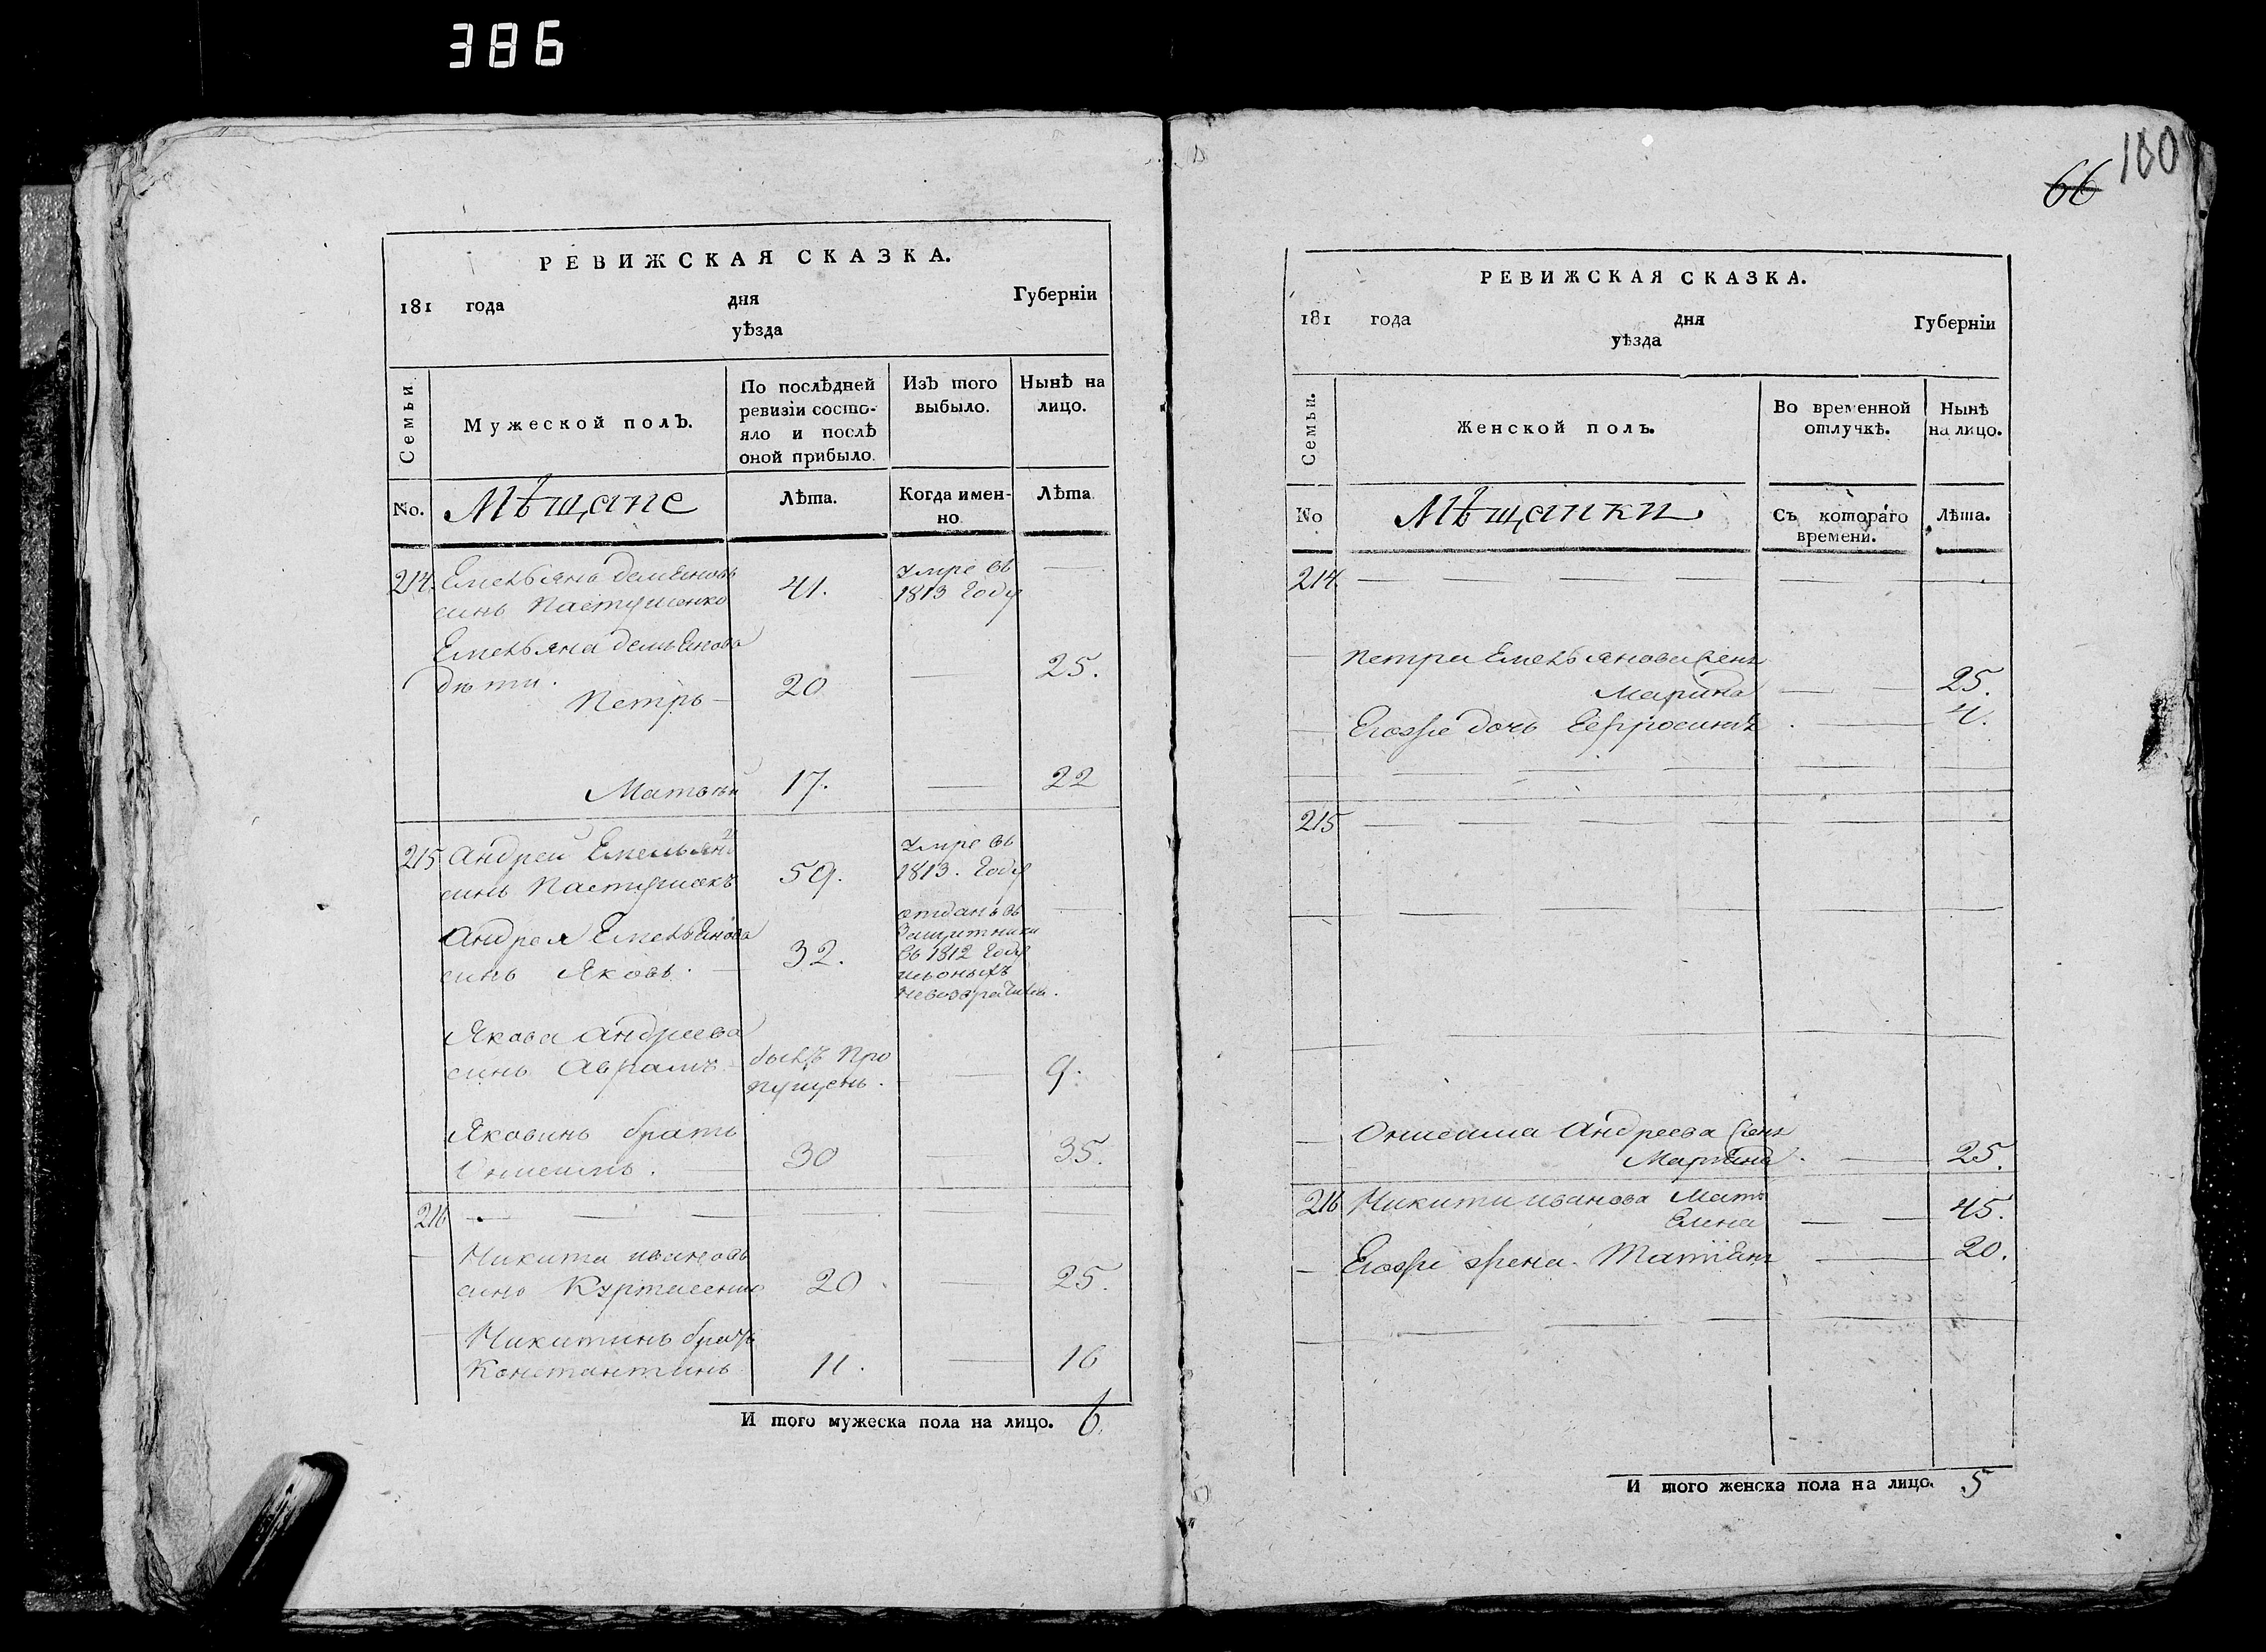 386
РЕВИЖСКАЯ СКАЗКА.
181 года дня Губерніи
уѣзда
Семьи
Мужеской полъ.
По послѣдней ревизіи состо-
яло и послѣ
оной прибыло.
Изъ того
выбыло.
Нынѣ на
лицо.
No.
Мѣщане
Лѣта.
Когда имен-
но
Лѣта
214. Емельянъ демьяновъ
синъ Пастушенко
41.
умре въ
1813 году
Емельяна демьянова
дѣти.
Петръ
20
25.
Матвѣй
17.
22
215 Андрей Емельянъ
синъ Пастушокъ
59.
умре въ
1813. году
Андрея Емельянова
синъ Яковъ.
32.
отданъ въ
защитники
въ 1812 году
Якова Андреева
синъ Аврамъ
былъ про
пущенъ.
9.
Яковинъ братъ
Онисимъ.
30
35.
216
Никита ивановъ
синъ
20
25.
Никитинъ братъ
Константинъ
11.
16
И того мужеска пола на лицо. 6.
66 180
РЕВИЖСКАЯ СКАЗКА.
181 года дня Губерніи
уѣзда
Семьи.
Женской полъ.
Во временной
отлучкѣ.
Нынѣ
на лицо.
No
Мѣщанки
Съ котораго
времени.
Лѣта.
214
Петра Емельянова жена
Марина
25.
Егоже дочь Ефросинія
4.
215
Онисима Андреева жена
25.
216 Никити иванова Мать
Елена
45.
Егоже жена Татіяна
20.
И того женска пола на лицо. 5